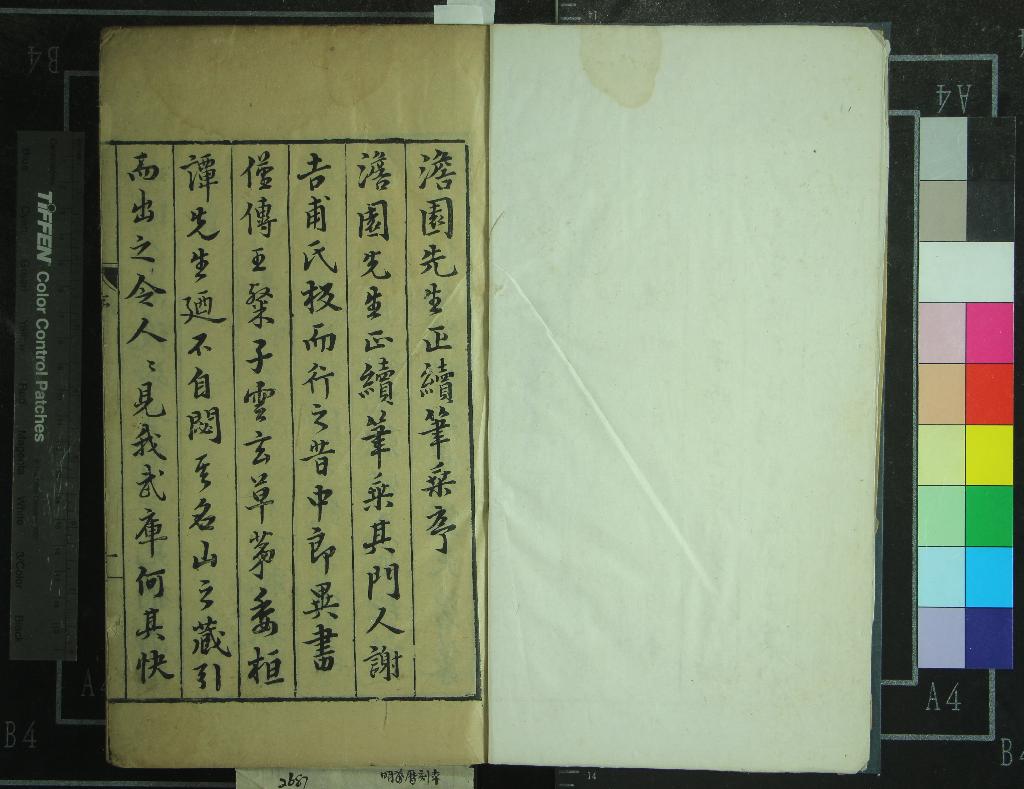 澹園先生正續筆乘序
澹園先生正續筆乘其門人謝
吉甫氏板而行之昔中郎異書
僅傳王粲子雲玄草茅委桓
譚先生廼不自閟至名山之藏引
而出之令人〻見我武庫何其快
序
2687
TIFFEN Color Control Patches
A4
A4
A4
B4
B4
B4
14